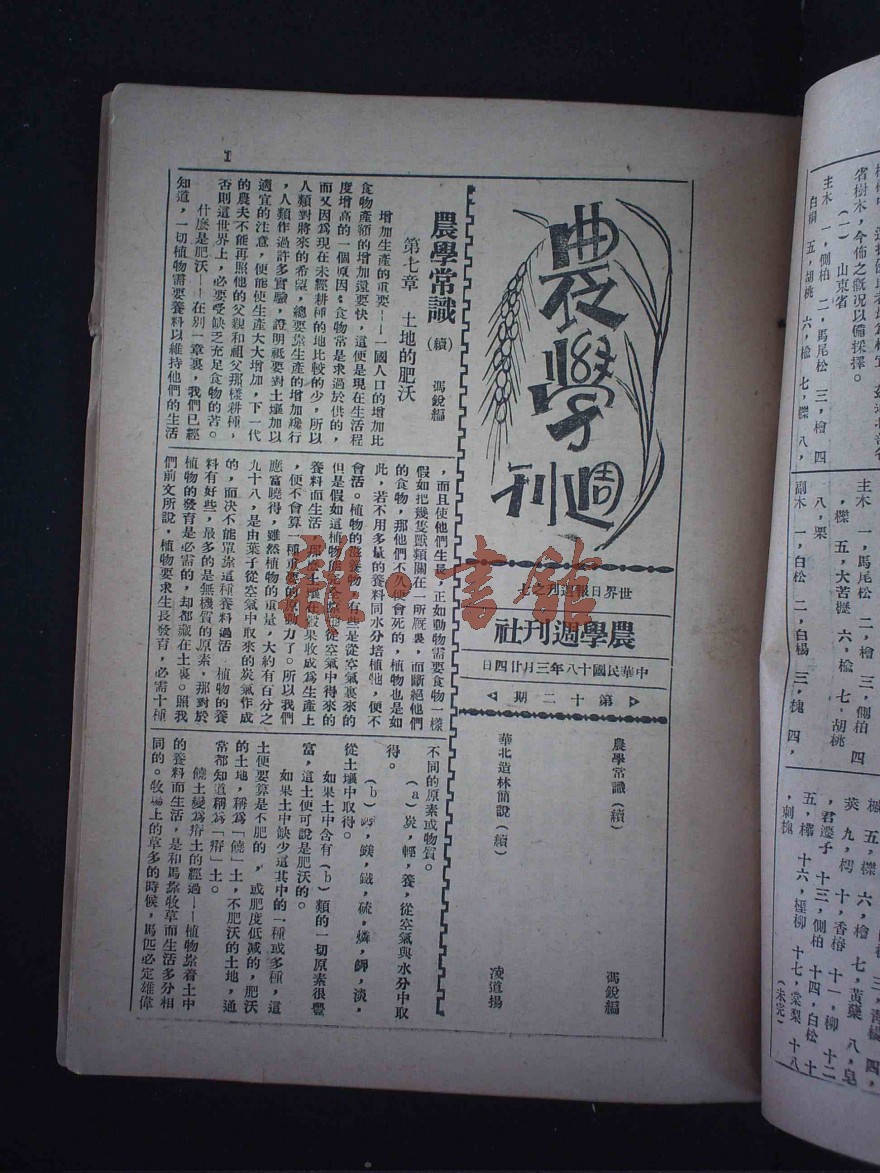 農學
週刊
世界日報週刊之七
農學週刊社
中華民國十八年三月廿四日
第十二期
農學常識(續)
馮銳編
華北造林簡說(續)
凌道揚
1
農學常識(續) 馮銳編
第七章 土地的肥沃
增加生產的重要——一國人口的增加比
食物產額的增加還要快,這便是現在生活程
度增高的一個原因;食物常是求過於供的,
而又因爲現在未經耕種的地比較的少,所以
人類對將來的希望,總要靠生產的增加纔行
,人類作過許多實驗,證明祇要對土壤加以
適宜的注意,便能使生產大大增加,下一代
的農夫不能再照他的父親和祖父那樣耕種,
否則這世界上,必要受缺乏充足食物的苦。
什麼是肥沃——在別一章裏,我們已經
知道,一切植物需要養料以維持他們的生活
,而且使他們生長,正如動物需要食物一樣
假如把幾隻獸類關在一所厩裏,而斷絕他們
的食物,那他們不久便會死的,植物也是如
此,若不用多量的養料同水分培植牠,便不
會活。植物的滋養物,有些是從空氣裏來的
但是假如這植物能全靠從空氣中得來的
養料而生活,那麼土壤在穀果收成爲生產上
,便不會算一種重要的原動力了。所以我們
應當曉得,雖然植物的重量,大約有百分之
九十八,是由葉子從空氣中取來的炭氣作成
的,而決不能單靠這種養料過活 植物的養
料有好些,最多的是無機質的原素,那對於
植物的發育是必需的,却都藏在土裏。照我
們前文所說,植物要求生長發育,必需十種
不同的原素或物質。
(a)炭,輕,養,從空氣與水分中取
得。
(b)鈣,鎂,鐵,硫,燐,鉀,淡,
從土壤中取得。
如果土中含有(b)類的一切原素很豐
富,這土便可說是肥沃的。
如果土中缺少這其中的一種或多種,這
土便要算是不肥的,或肥度低減的,肥沃
的土地,稱爲「饒」土,不肥沃的土地,通
常都知道稱爲「瘠」土。
饒土變爲瘠土的經過——植物靠着土中
的養料而生活,是和馬靠牧草而生活多分相
同的。牧場上的草多的時候,馬匹必定雄偉
雜·書館
省樹木,今佈之概況以備採擇。
(一)山東省
主木 一,側柏 二,馬尾松 三,檜 四
白楊 五,胡桃 六,楡 七,櫟 八,
主木 一,馬尾松 二,側柏 四
,櫟 五,大苦櫪 六,楡 七,胡桃
八,栗
副木 一,白松 二,白楊 三,槐 四,
五,櫟 六,檜 七,黃蘗 八,皂
莢 九,樗 十,香椿 十一,柳 十二
,君遷子 十三,側柏 十四,白松 十
五,檉 十六,檉柳 十七,棠梨 十八
,刺槐 (未完)